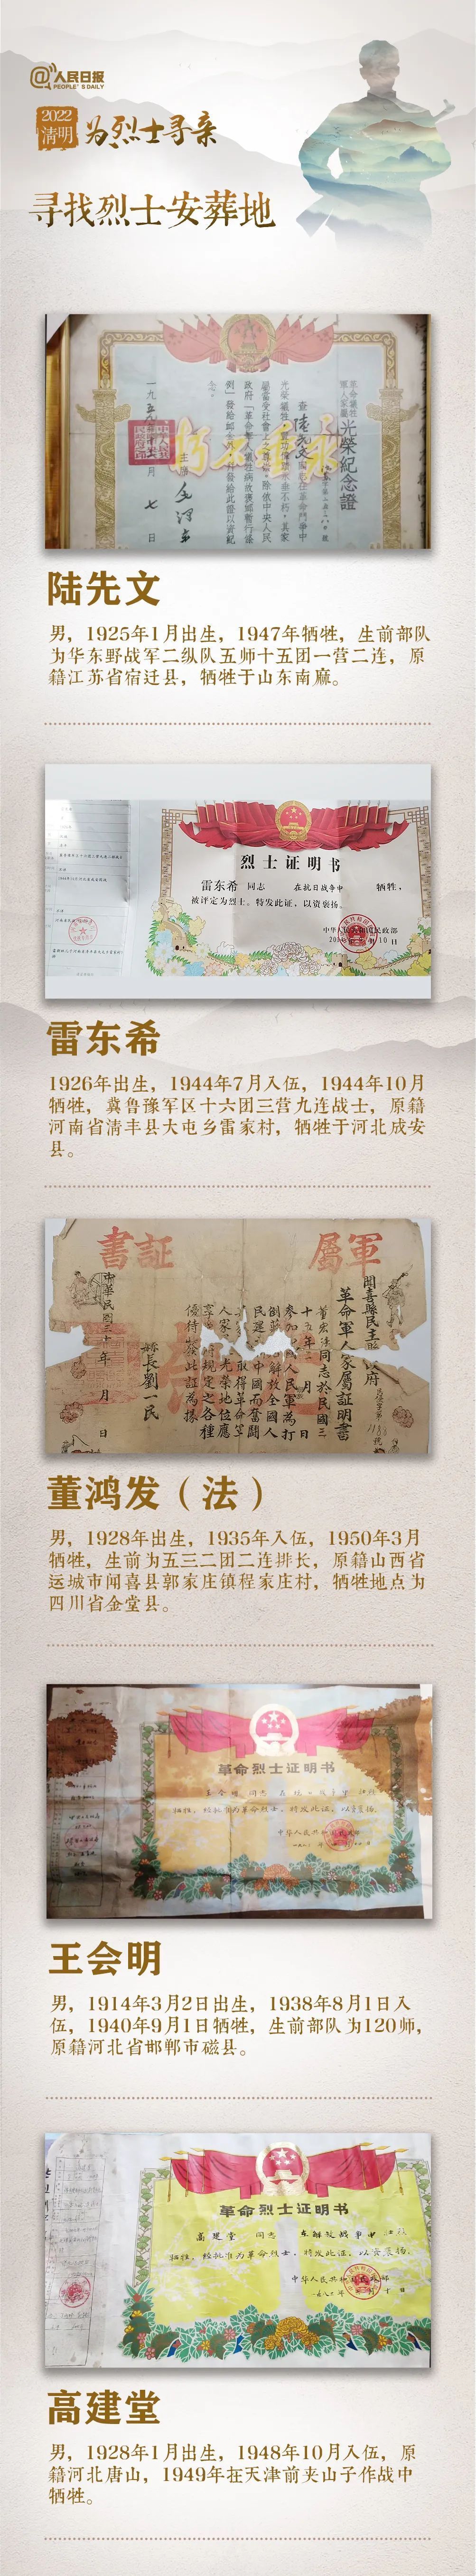 @人民日报
PEOPLE'S DAILY
2022
清明
为烈士寻亲
寻找烈士安葬地
革命牺牲
軍人家屬
光榮紀念證
永垂不朽
陆先文
男，1925年1月出生，1947年牺牲，生前部队
为华东野战军二纵队五师十五团一营二连，原
籍江苏省宿迁县，牺牲于山东南麻。
烈士证明书
雷东希 同志 在抗日战争中 牺牲，
被评定为烈士。特发此证，以资褒扬。
中华人民共和国民政部
雷东希
1926年出生，1944年7月入伍，1944年10月
牺牲，冀鲁豫军区十六团三营九连战士，原籍
河南省清丰县大屯乡雷家村，牺牲于河北成安
县。
軍屬
証書
革命軍人家屬証明書
縣長劉一民
董鸿发（法）
男，1928年出生，1935年入伍，1950年3月
牺牲，生前为五三二团二连排长，原籍山西省
运城市闻喜县郭家庄镇程家庄村，牺牲地点为
四川省金堂县。
革命烈士证明书
王会明 同志
牺牲，经批准为革命烈士，特发此证，以资褒扬。
王会明
男，1914年3月2日出生，1938年8月1日入
伍，1940年9月1日牺牲，生前部队为120师，
原籍河北省邯郸市磁县。
革命烈士证明书
高建堂 同志 在解放战争中
牺牲，经批准为革命烈士，特发此证，以资褒扬。
高建堂
男，1928年1月出生，1948年10月入伍，原
籍河北唐山，1949年在天津前夹山子作战中
牺牲。